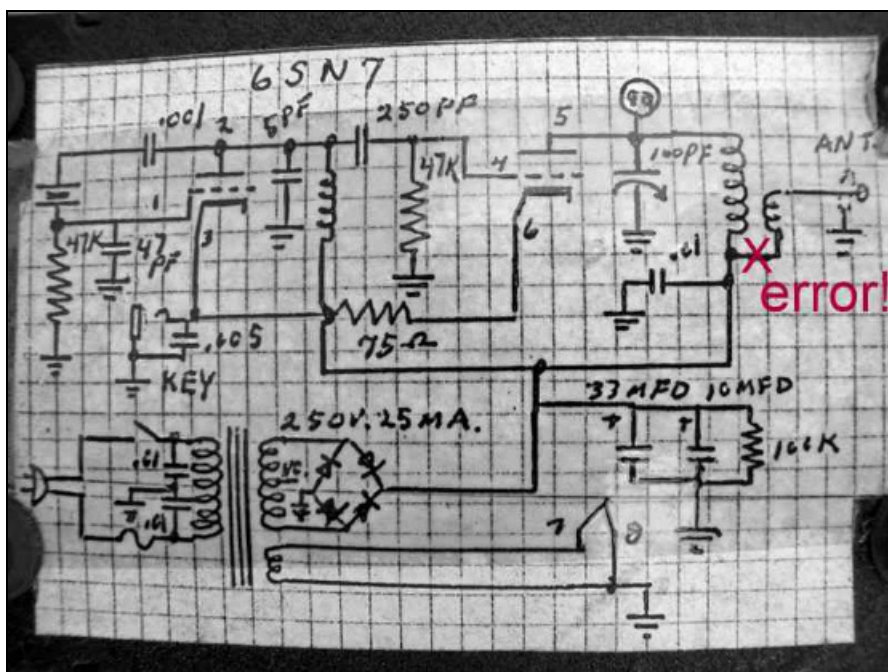 6SN7
.001
2
5PF
250PF
5
80
ANT.
1
47K
4
100PF
47K
47
PF
3
6
.01
X
error!
.005
75Ω
KEY
33MFD 10MFD
250V. 25MA.
+
+
100K
.01
.01
7
8